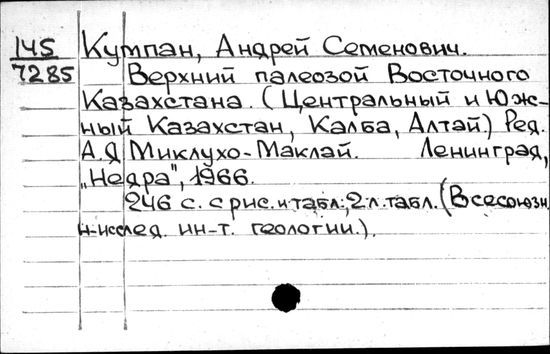 145
7285
Кумпан, Андрей Семенович.
Верхний палеозой Восточного
Казахстана. (Центральный и Юж-
ный Казахстан, Калба, Алтай.) Ред.
А.Д Миклухо-Маклай. Ленинград,
„Недра", 1966.
246 с. с рис. и табл.; 2 л. табл. (Всесоюзн.
н-исслед. ин-т. геологии.).